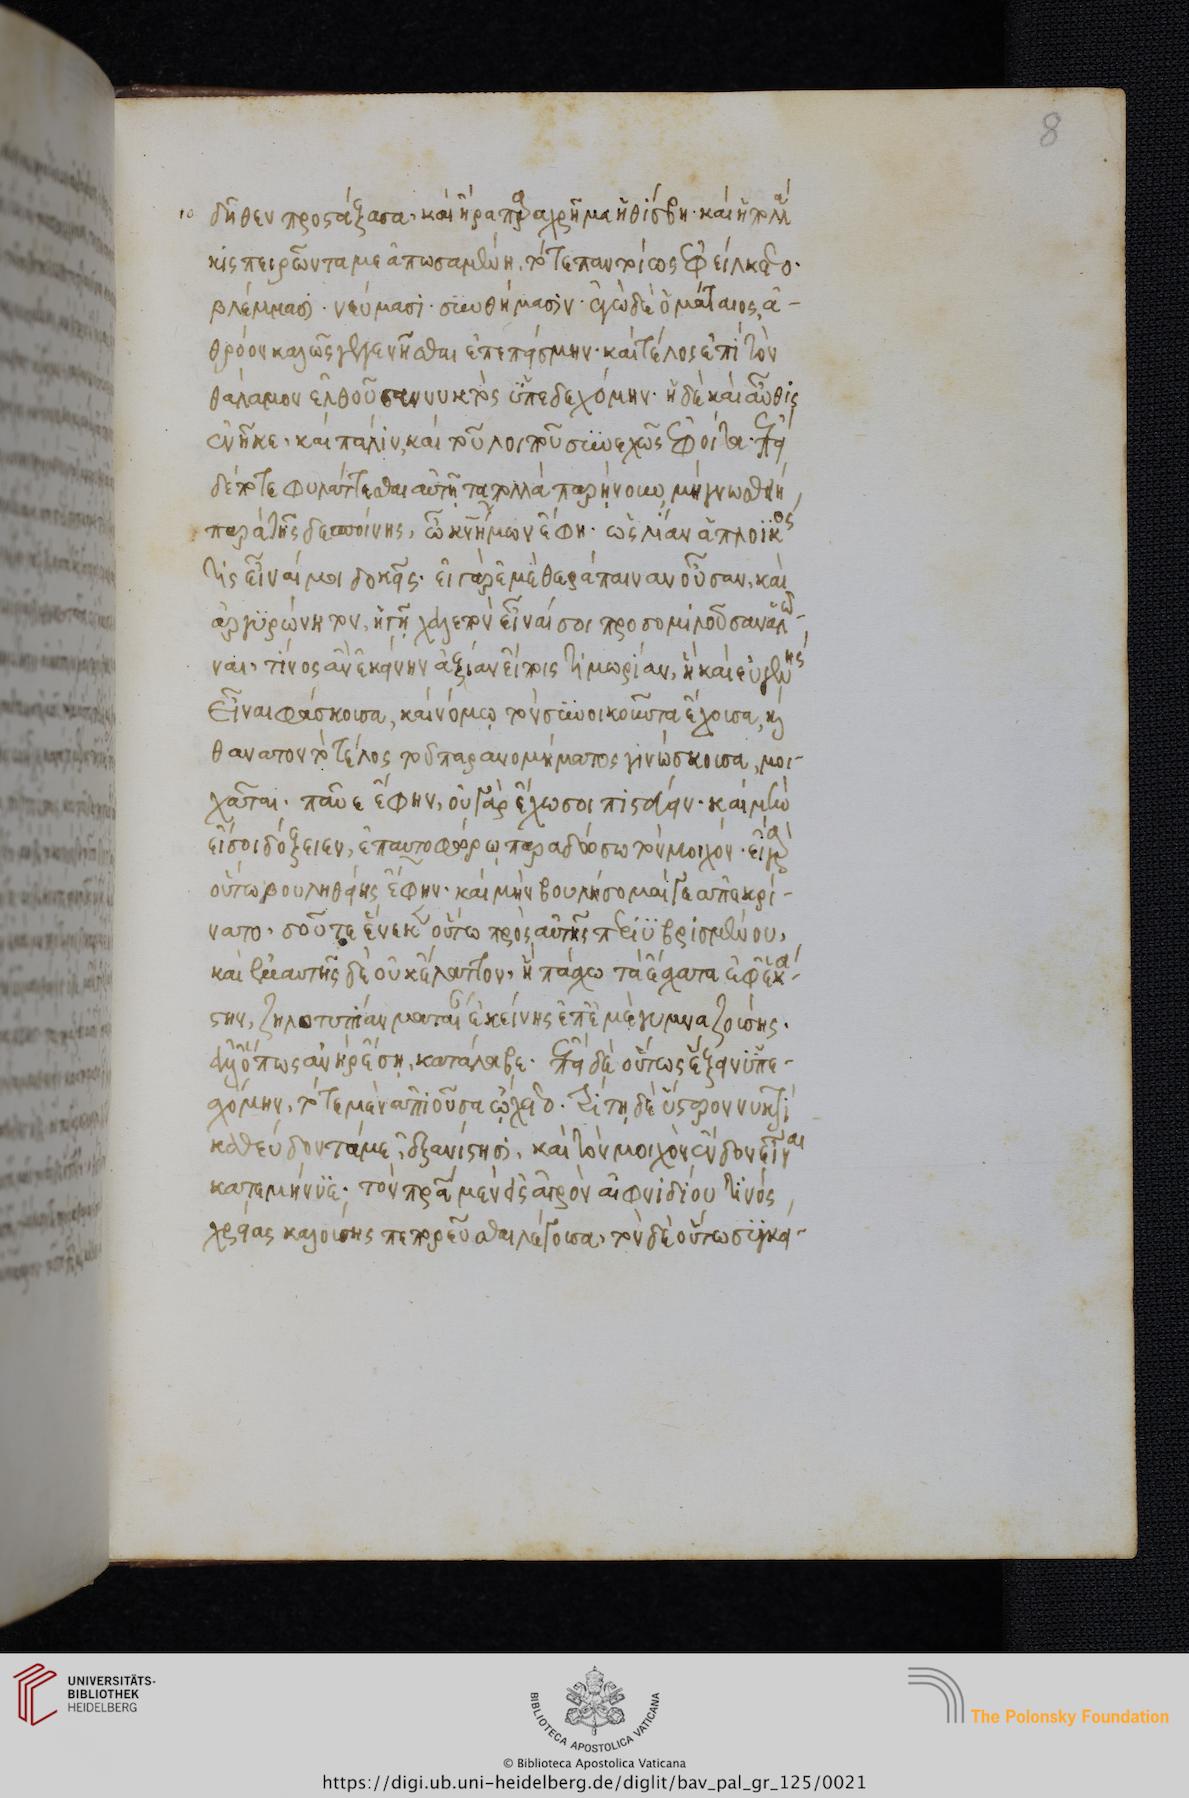 8
10 δῆθεν προστάξασα· καὶ ἤρα παραχρῆμα ἡ θίσβη· καὶ ἡ πολλά
κις πειρῶντά με ἀπωσαμένη, τότε παντοίως ἐφείλκετο·
βλέμμασι· νεύμασι· συνθήμασιν· ἐγὼ δὲ ὁ μάταιος, ἀ-
θρόον καλῶς γεγενῆσθαι ἐπεπείσμην· καὶ τέλος ἐπὶ τὸν
θάλαμον ἐλθοῦσαν νυκτὸς ὑπεδεχόμην· ἡ δὲ καὶ αὖθις
ἐνῆκε· καὶ πάλιν, καὶ τοῦ λοιποῦ συνεχῶς ἐφοίτα· ἐπεὶ
δέ ποτε φυλάττεσθαι αὐτῇ τὰ πολλὰ παρῄνουν, μὴ γνωσθείη
παρὰ τῆς δεσποίνης, ὦ κνήμων ἔφη· ὡς λίαν ἁπλοϊκός
τις εἶναί μοι δοκεῖς· εἰ γὰρ ἐμὲ θεράπαιναν οὖσαν, καὶ
ἀργυρώνητον, ἡγῇ χαλεπὸν εἶναί σοι προσομιλοῦσαν ἁλῶ-
ναι, τίνος ἂν ἐκείνην ἀξίαν εἴποις τιμωρίαν, ἣ καὶ εὐγενής
εἶναι φάσκουσα, καὶ νόμῳ τὸν συνοικοῦντα ἔχουσα, καὶ
θάνατον τὸ τέλος τοῦ παρανομήματος γινώσκουσα, μοι-
χᾶται· παῦε ἔφην, οὐ γὰρ ἔχω σοι πιστεύειν· καὶ μὴν
εἴ σοι δόξειεν, ἐπαυτοφώρῳ παραδώσω τὸν μοιχόν· εἰ γὰρ
οὕτω βουληθείης ἔφην· καὶ μὴν βουλήσομαί γε ἀπεκρί-
νατο· σοῦ τε ἕνεκα οὕτω πρὸς αὐτῆς περιϋβρισμένου,
καὶ ἐμαυτῆς δὲ οὐκ ἔλαττον, ἣ πάσχω τὰ ἔσχατα ἐφ' ἑκά-
στην, ζηλοτυπίαν ματαίαν ἐκείνης ἐπ' ἐμὲ γυμναζούσης·
ἀλλ' ὅπως ἀνὴρ ἔσῃ, κατάλαβε· ἐπεὶ δὲ οὕτως ἕξειν ὑπε-
σχόμην, τότε μὲν ἀπιοῦσα ᾤχετο· τρίτῃ δὲ ὕστερον νυκτὶ
καθεύδοντά με, ἐξανίστησι, καὶ τὸν μοιχὸν ἔνδον εἶναι
κατεμήνυε· τὸν πατέρα μὲν εἰς ἀγρὸν αἰφνιδίου τινός
χρείας καλούσης πεπορεῦσθαι λέγουσα, τὸν δὲ οὕτω συγκεί-
UNIVERSITÄTS-
BIBLIOTHEK
HEIDELBERG
BIBLIOTECA APOSTOLICA VATICANA
The Polonsky Foundation
© Biblioteca Apostolica Vaticana
https://digi.ub.uni-heidelberg.de/diglit/bav_pal_gr_125/0021